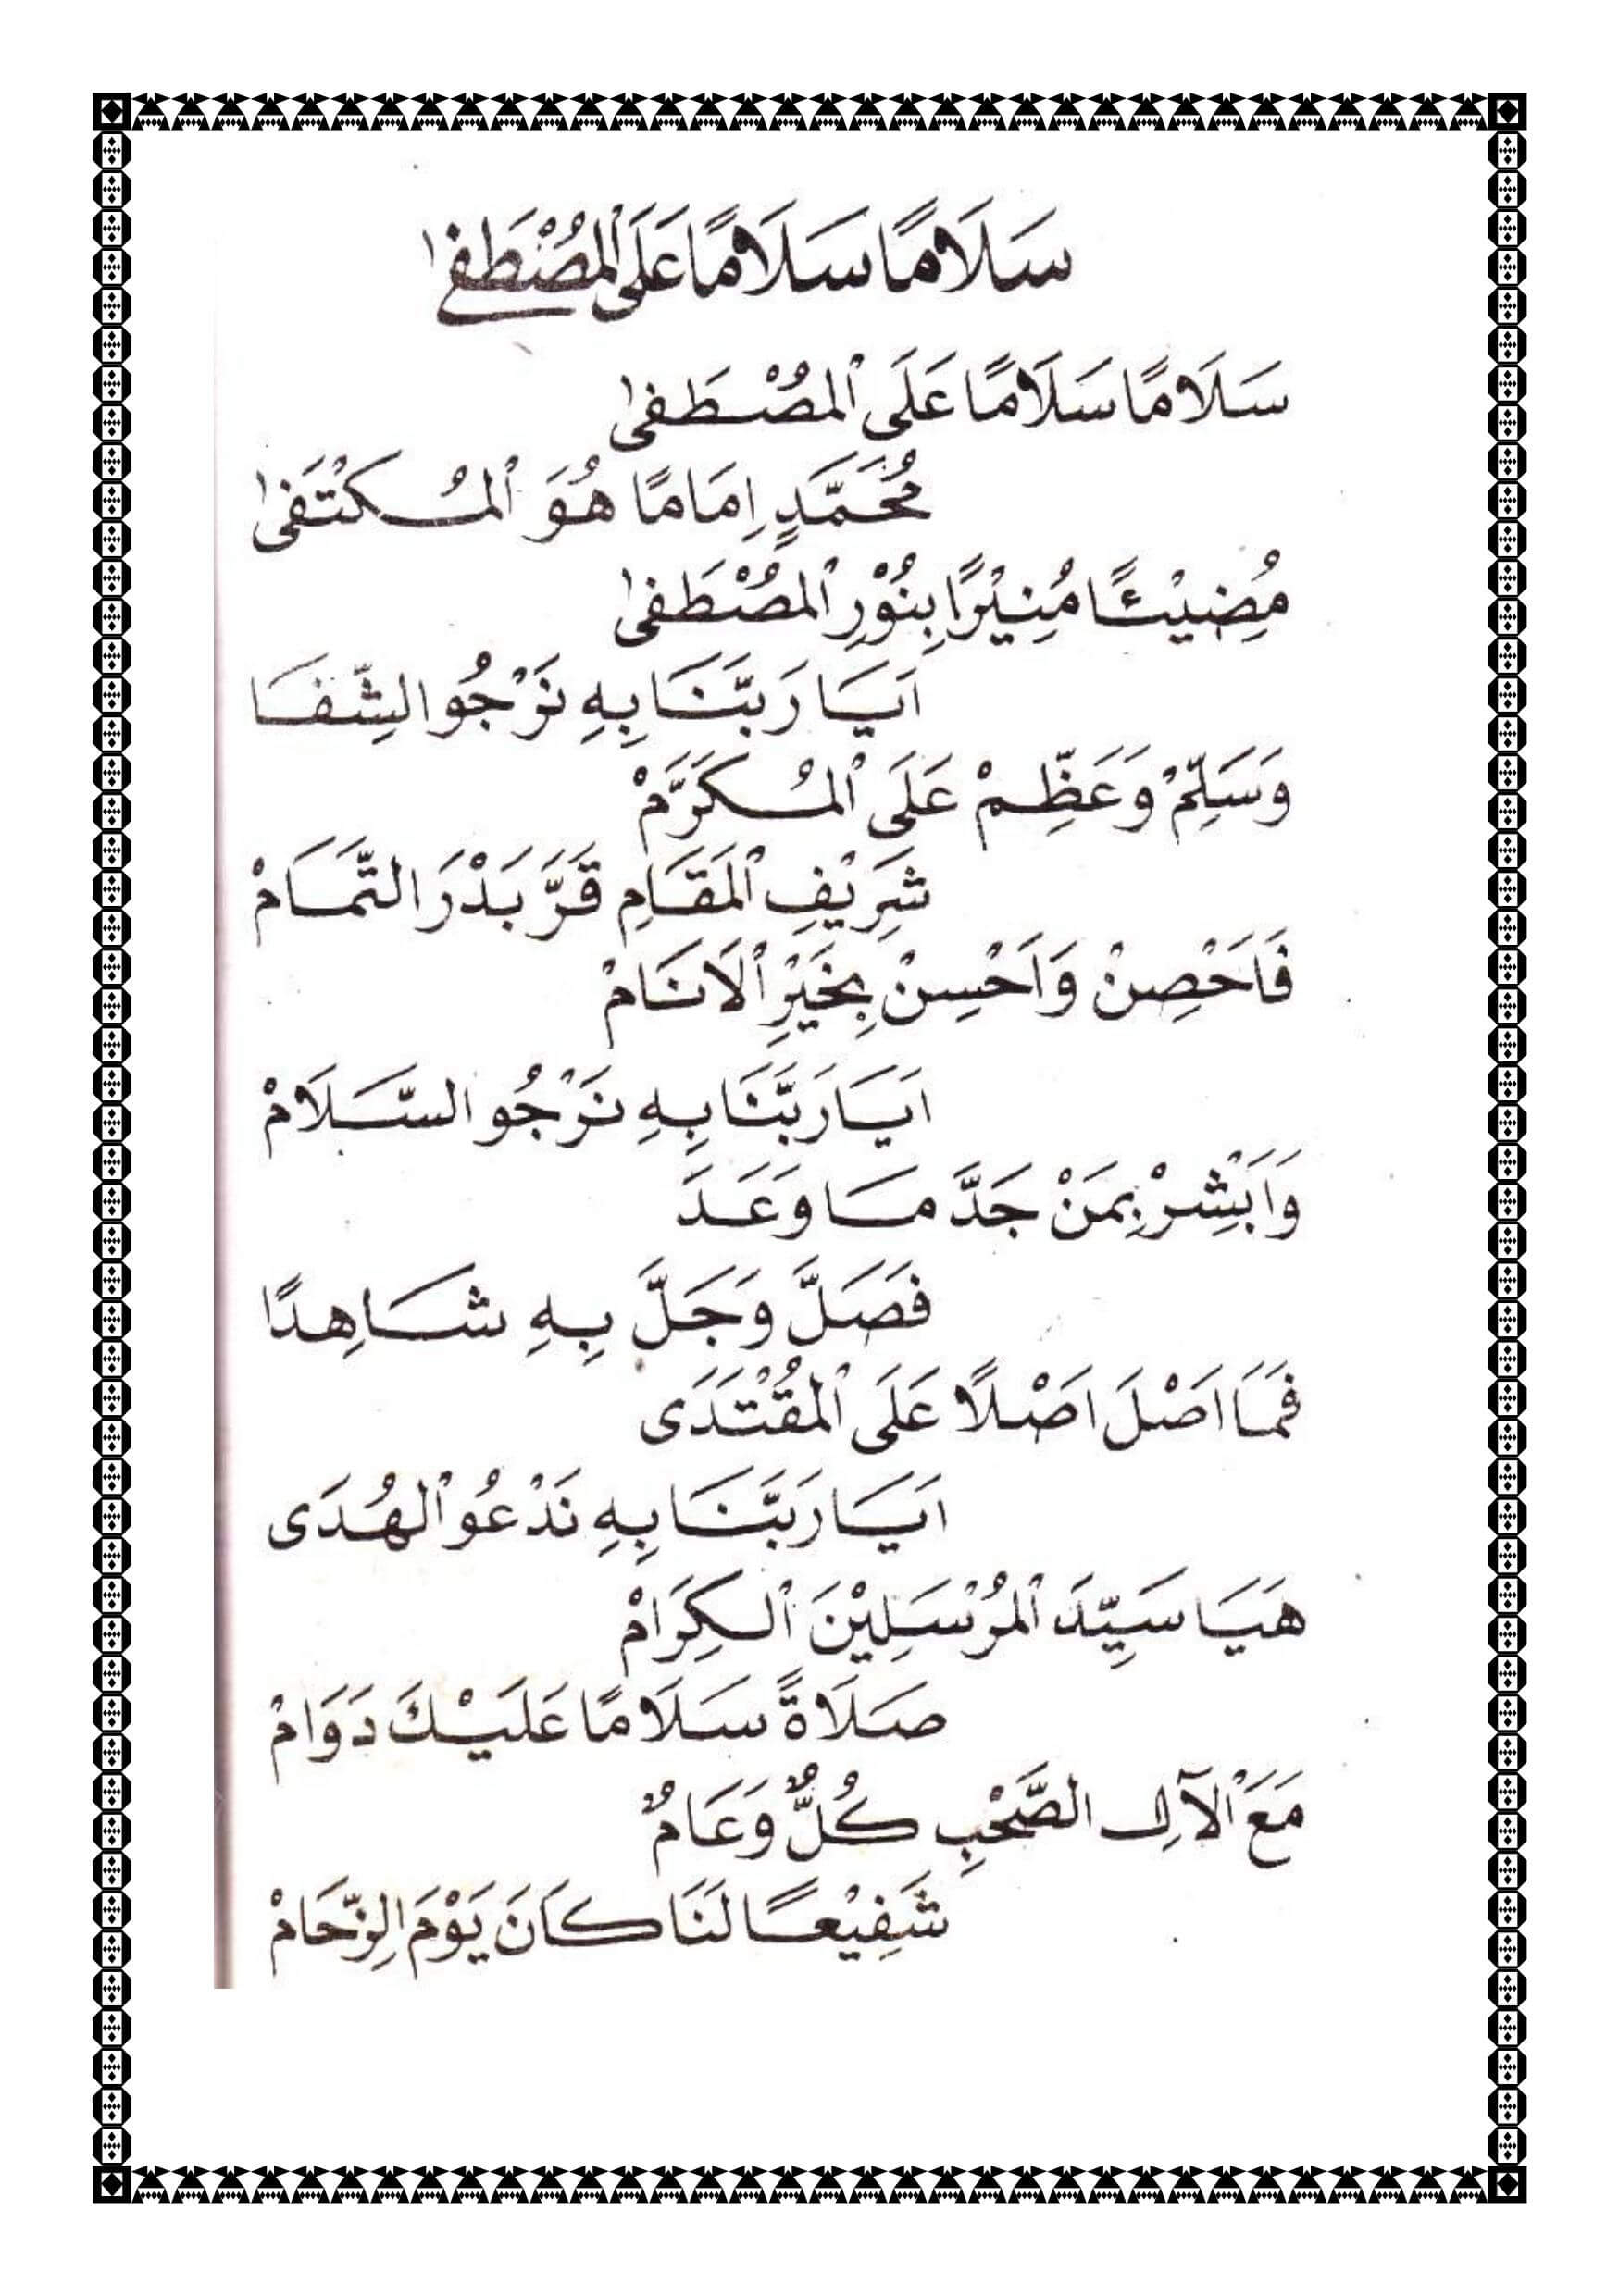 سَلَامًا سَلَامًا عَلَى الْمُصْطَفىٰ
سَلَامًا سَلَامًا عَلَى الْمُصْطَفىٰ
مُحَمَّدٍ اِمَامًا هُوَ الْمُكْتَفىٰ
مُضِيْئًا مُنِيْرًا بِنُوْرِ الْمُصْطَفىٰ
اَيَا رَبَّنَا بِهِ نَرْجُو الشِّفَا
وَسَلِّمْ وَعَظِّمْ عَلَى الْمُكَرَّمْ
شَرِيْفِ الْمَقَامِ قَرَّ بَدْرَ التَّمَامْ
فَاَحْصِنْ وَاَحْسِنْ بِخَيْرِ الْاَنَامْ
اَيَا رَبَّنَا بِهِ نَرْجُو السَّلَامْ
وَاَبْشِرْ بِمَنْ جَدَّ مَا وَعَدَ
فَصَلَّ وَجَلَّ بِهِ شَاهِدًا
فَمَا اَصْلَ اَصْلًا عَلَى الْمُقْتَدَى
اَيَا رَبَّنَا بِهِ نَدْعُو الْهُدَى
هَيَا سَيِّدَ الْمُرْسَلِيْنَ الْكِرَامْ
صَلَاةً سَلَامًا عَلَيْكَ دَوَامْ
مَعَ الْآلِ الصَّحْبِ كُلٌّ وَعَامٌ
شَفِيْعًا لَنَا كَانَ يَوْمَ الزِّحَامْ